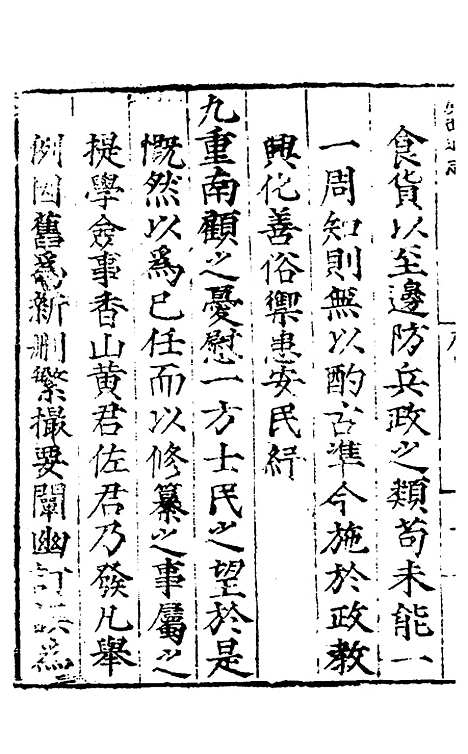 食貨以至邊防兵政之類苟未能一
一周知則無以酌古準今施於政教
興化善俗禦患安民紓
九重南顧之憂慰一方士民之望於是
慨然以為己任而以修纂之事屬之
提學僉事香山黄君佐君乃發凡舉
例因舊為新刪繁撮要闡幽訂誤